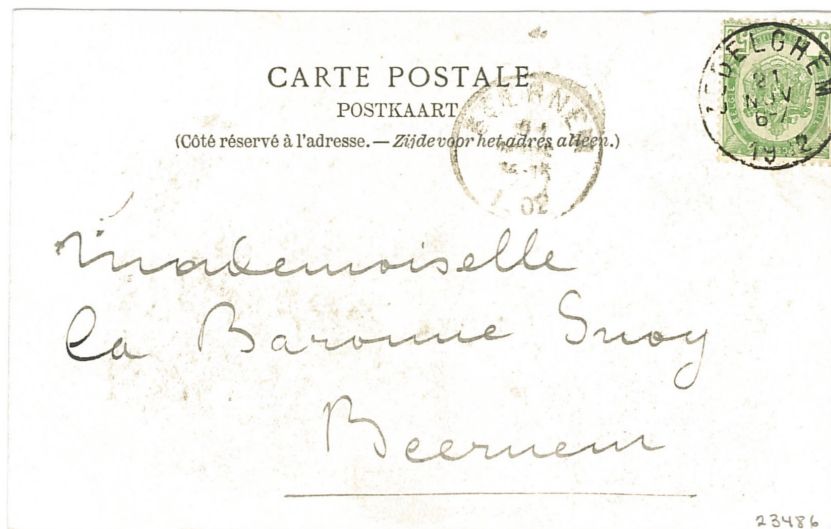 CARTE POSTALE
POSTKAART
(Côté réservé à l'adresse. — Zijde voor het adres alleen.)
EDELGHEM
21
NOV
6-7
19 2
02
Mademoiselle
La Baronne Snoy
Beernem
23486